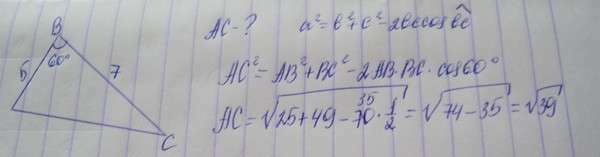 B
5 60° 7
C
AC-? a²=b²+c²-2bc cos b̂c
AC²=AB²+BC²-2AB·BC·cos60°
AC=√(25+49-70·1/2)=√(74-35)=√39
35